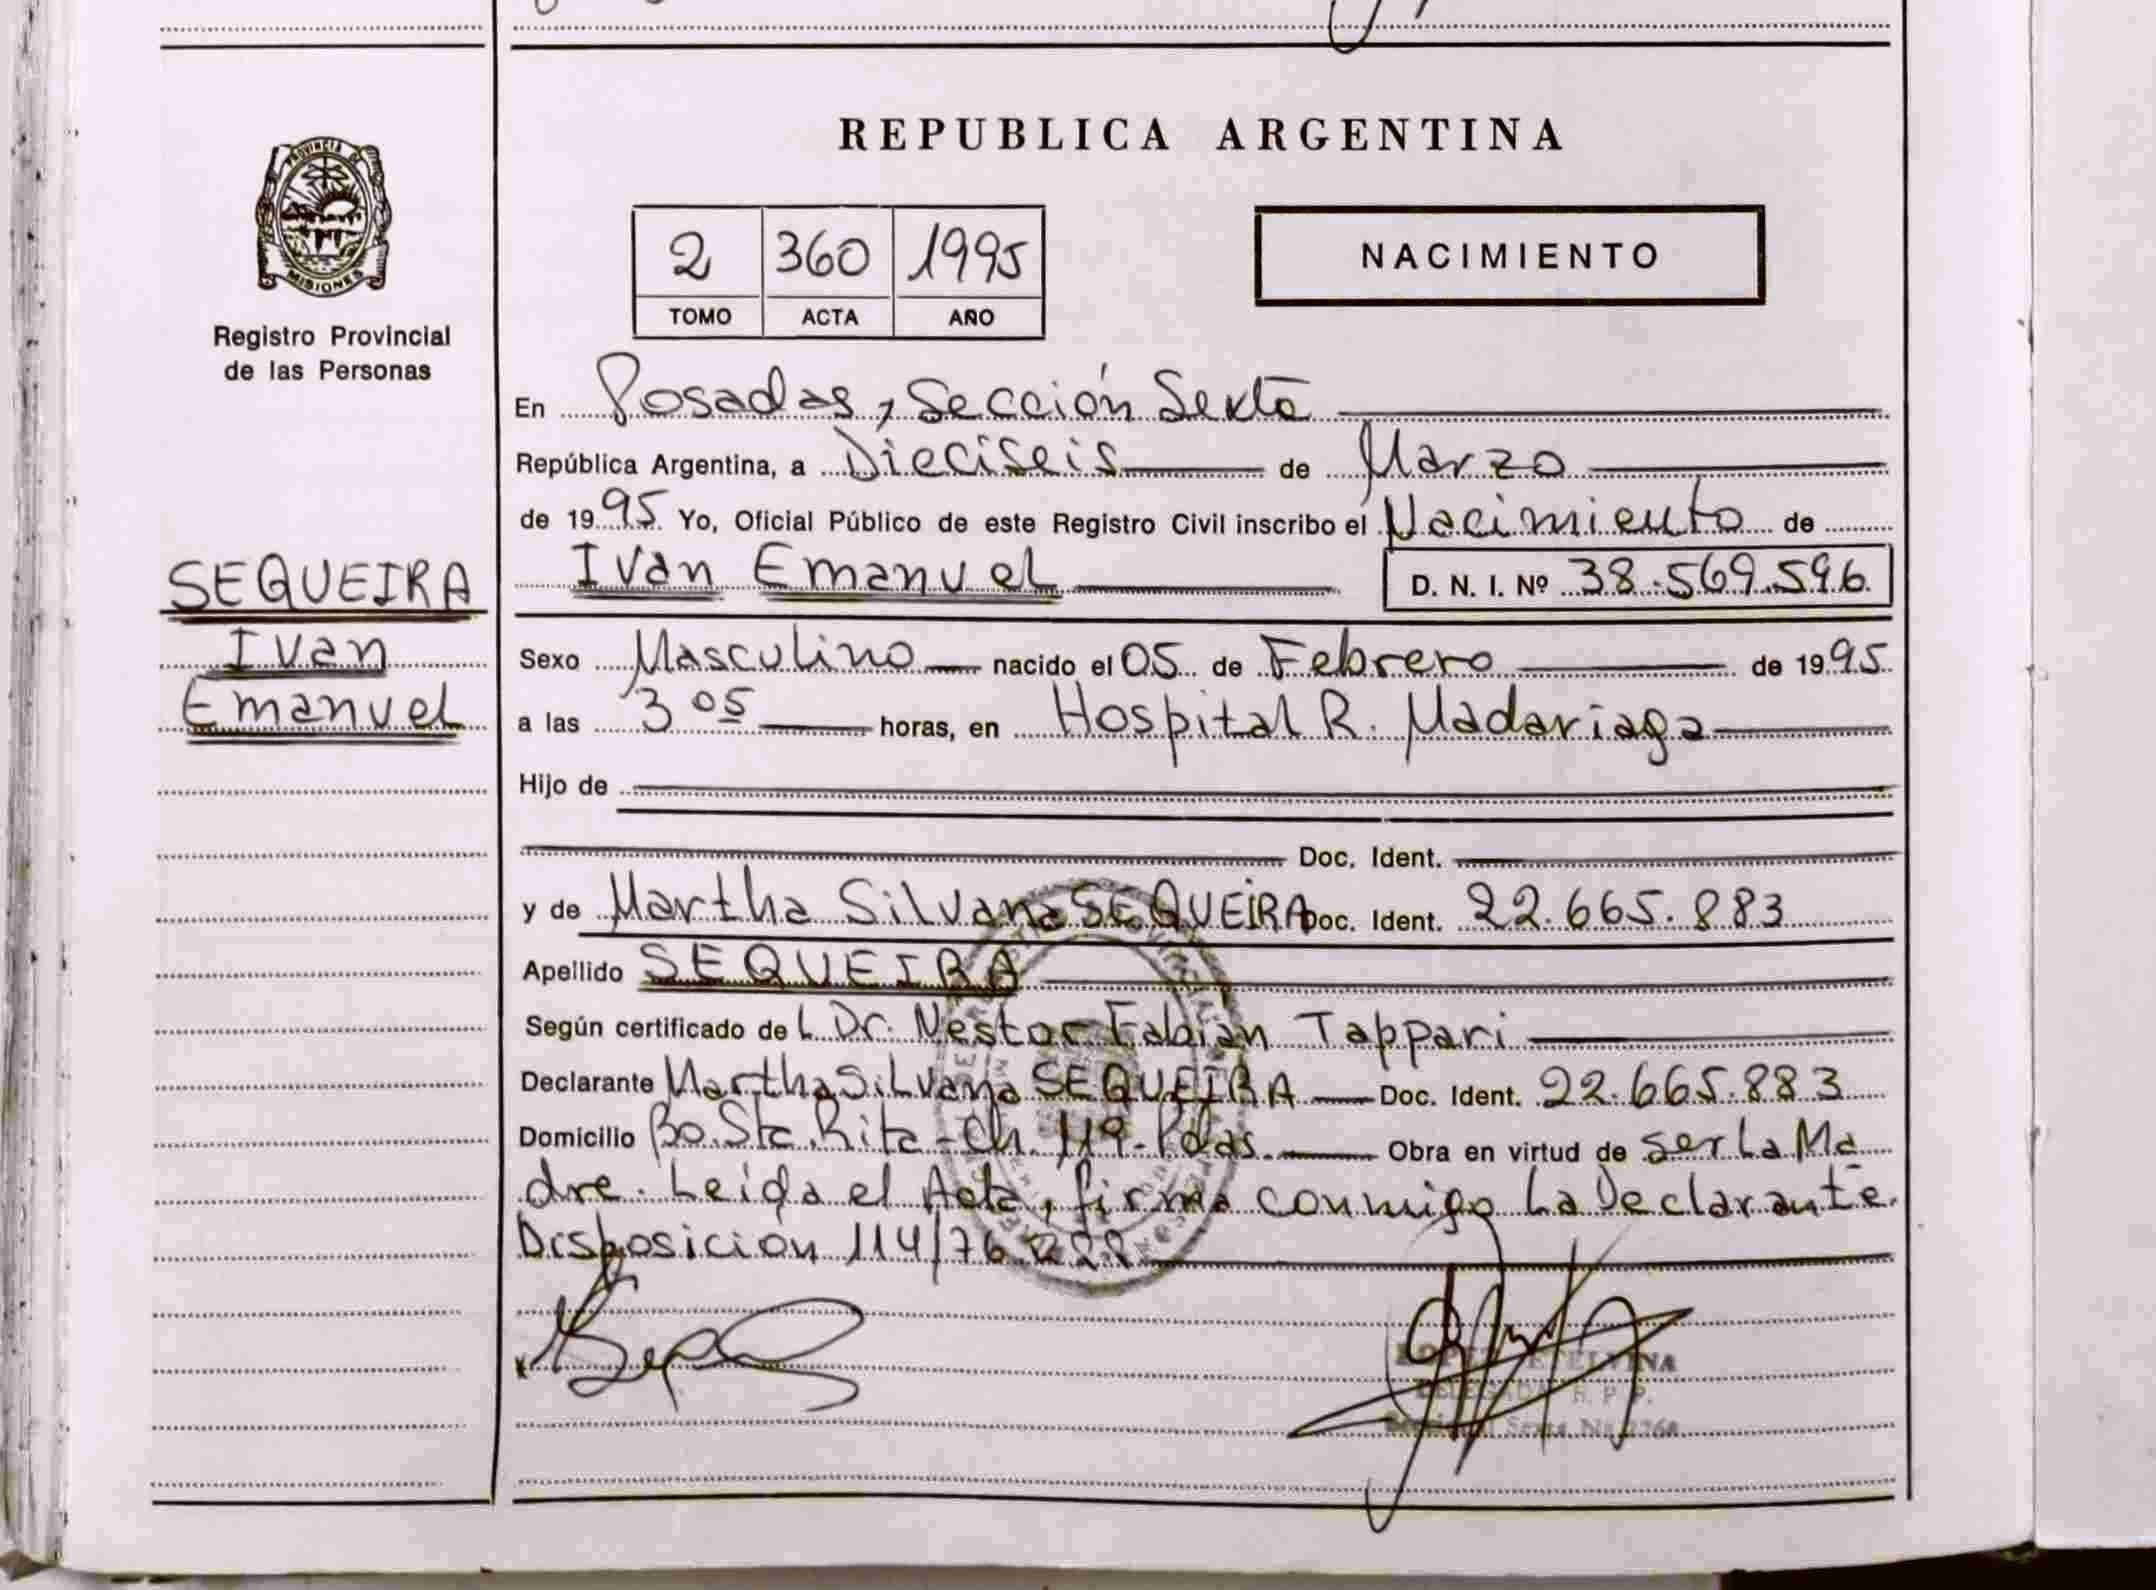 PROVINCIA DE
MISIONES
Registro Provincial
de las Personas
SEQUEIRA
Ivan
Emanuel
REPUBLICA ARGENTINA
2 360 1995
TOMO ACTA AÑO
NACIMIENTO
En Posadas, Sección Sexta
República Argentina, a Dieciseis de Marzo
de 1995 Yo, Oficial Público de este Registro Civil inscribo el Nacimiento de
Ivan Emanuel D. N. I. Nº 38.569.596
Sexo Masculino nacido el 05 de Febrero de 1995
a las 3 05 horas, en Hospital R. Madariaga
Hijo de
Doc. Ident.
y de Martha Silvana SEQUEIRA Doc. Ident. 22.665.883
Apellido SEQUEIRA
Según certificado del Dr. Nestor Fabian Tappari
Declarante Martha Silvana SEQUEIRA Doc. Ident. 22.665.883
Domicilio Bo. Sta. Rita - Ch. 119 - Pdas. Obra en virtud de ser La Ma
dre. Leida el Acta, firma conmigo La Declarante.
Disposición 114/76
LOPEZ ETELVINA
DELEGADA R. P. P.